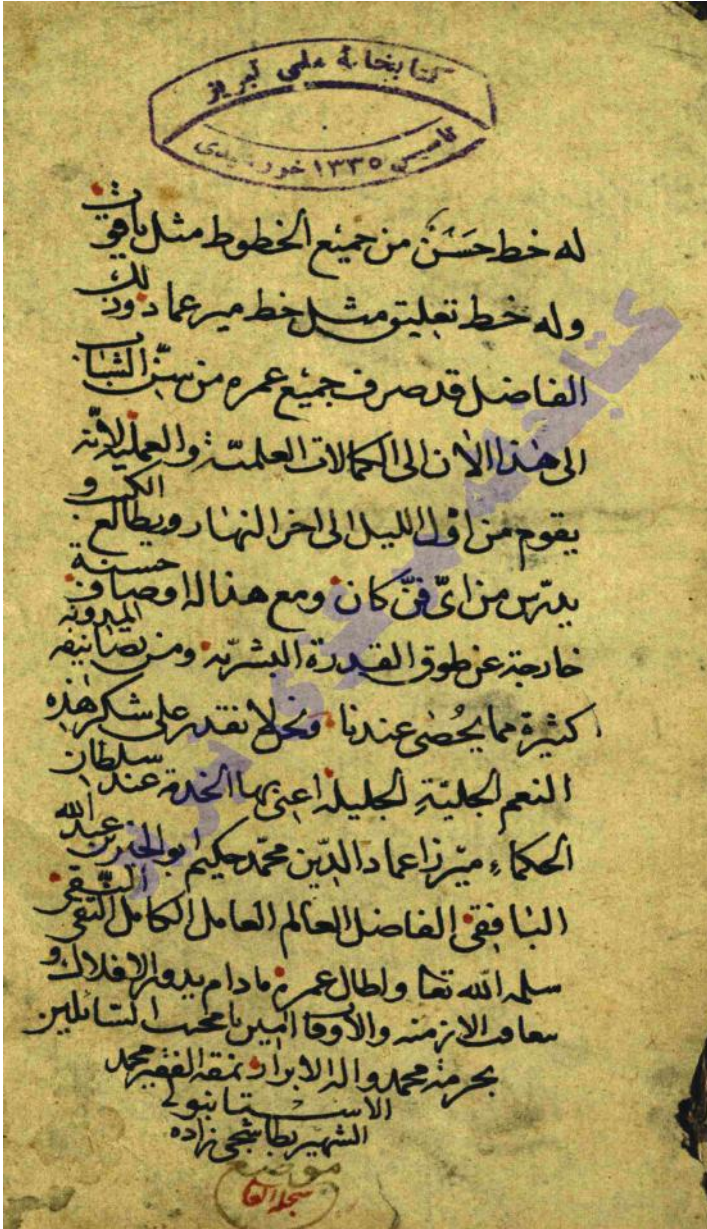 کتابخانهٔ ملی تبریز
تاسیس ۱۳۳۵ خورشیدی
له خط حَسَنٌ من جمیع الخطوط مثل یاقوت
وله خط تعلیق مثل خط میر عماد وذلک
الفاضل قد صرف جمیع عمره من سنّ الشباب
الی هذا الان الی الکمالات العلمیّة والعملیة لانّه
یقوم من اوّل اللیل الی اخر النهار ویطالع الکتب و
یدرّس من ایّ فنّ کان ومع هذا له اوصاف حسنة
خارجة عن طوق القدرة البشریّه ومن تصانیفه المدونه
کثیرة مما یحُصٰی عندنا ونحن لا نقدر علی شکر هٰذه
النعم الجلیّةِ الجلیله اعنی بها الخدمة عند سلطان
الحکماءِ میرزا عماد الدّین محمّد حکیم ابو الخیر بن عبد الله
الفاضل العالم العامل الکامل التقی النقی
سلمه الله تعا واطال عمره مادام یدور الافلاک و
الازمنه والاوقات امین یا مجیب السّائلین
بحرمة محمد واله الابرار نمقه الفقیر محمد
الاستانبولی
الشهیر زاده